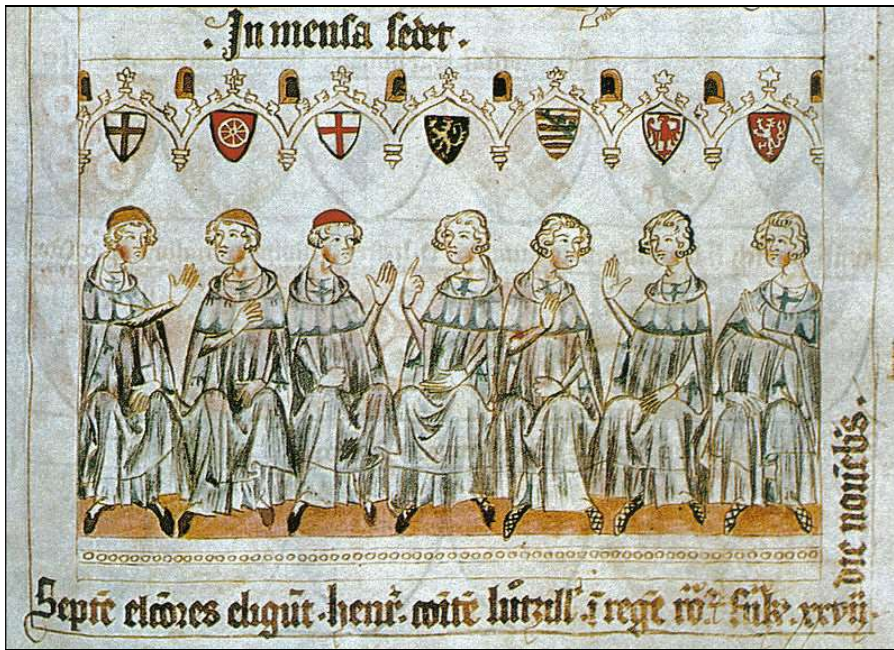 . In mensa sedet .
Septē elcōres eligūt · henr̄ · comitē lutzill' · ī regē ro' · · xxvii ·
die novēbis ·